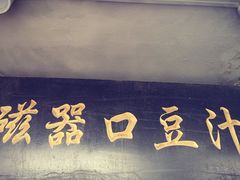 磁器口豆汁